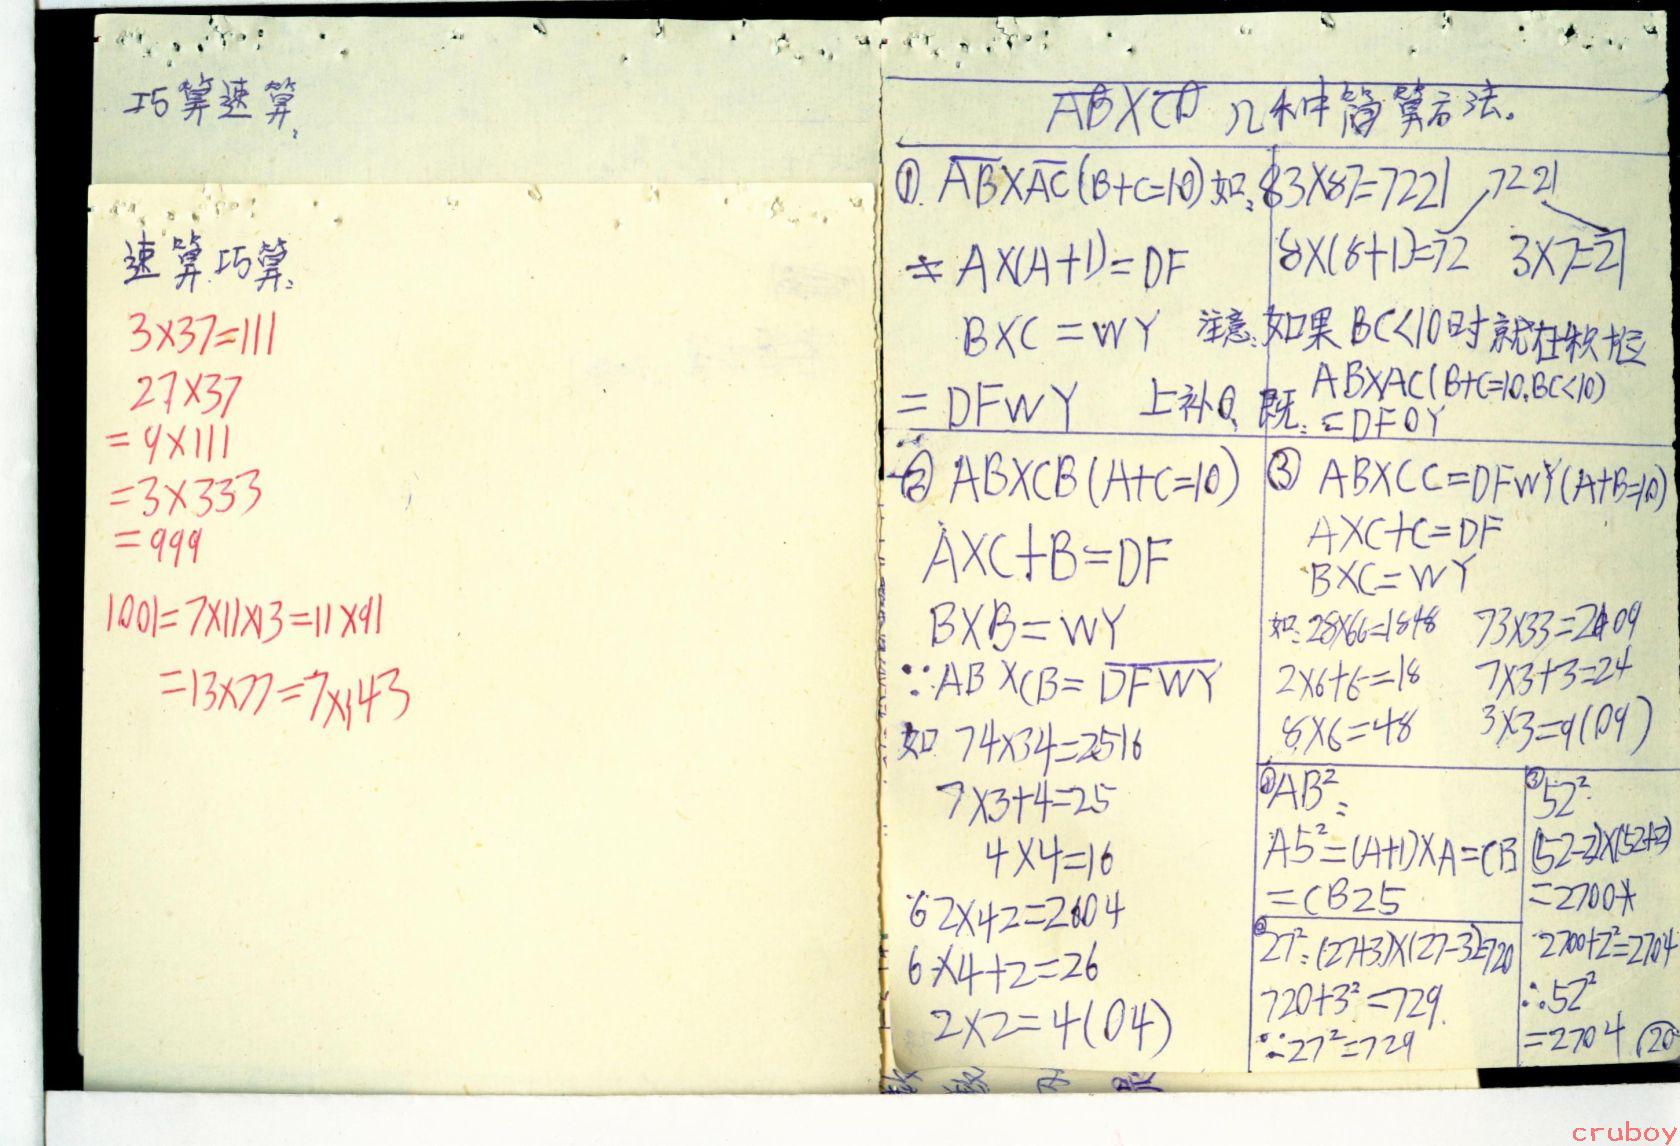 巧算速算:
速算巧算:
3×37=111
27×37
=9×111
=3×333
=999
1001=7×11×13=11×91
=13×77=7×143
AB×CD 几种简算方法.
① AB×AC(B+C=10) 如:83×87=7221 7221
= A×(A+1)=DF 8×(8+1)=72 3×7=21
B×C=WY 注意:如果BC<10时就在积十位
=DFWY 上补0, 既: AB×AC(B+C=10,BC<10)
=DF0Y
② AB×CB(A+C=10)
A×C+B=DF
B×B=WY
∵AB×CB=DFWY
如 74×34=2516
7×3+4=25
4×4=16
62×42=2604
6×4+2=26
2×2=4(04)
③ AB×CC=DFWY(A+B=10)
A×C+C=DF
B×C=WY
如:28×66=1848 73×33=2409
2×6+6=18 7×3+3=24
8×6=48 3×3=9(09)
①AB²=
A5²=(A+1)×A=CB
=CB25
②27²=(27+3)×(27-3)=720
720+3²=729.
∵27²=729
③52²
(52-2)×(52+2)
=2700
2700+2²=2704
∴52²
=2704 (20
cruboy